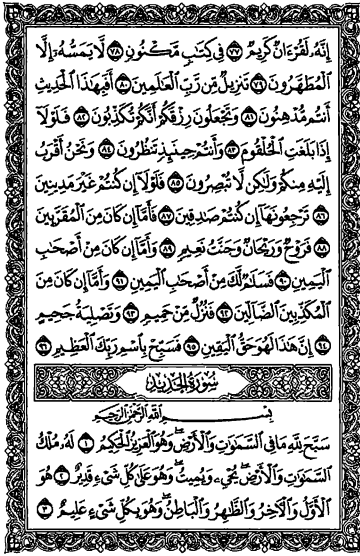 إِنَّهُۥ لَقُرْءَانٌ كَرِيمٌ ٧٧ فِي كِتَٰبٍ مَّكْنُونٍ ٧٨ لَّا يَمَسُّهُۥٓ إِلَّا
ٱلْمُطَهَّرُونَ ٧٩ تَنزِيلٌ مِّن رَّبِّ ٱلْعَٰلَمِينَ ٨٠ أَفَبِهَٰذَا ٱلْحَدِيثِ
أَنتُم مُّدْهِنُونَ ٨١ وَتَجْعَلُونَ رِزْقَكُمْ أَنَّكُمْ تُكَذِّبُونَ ٨٢ فَلَوْلَآ
إِذَا بَلَغَتِ ٱلْحُلْقُومَ ٨٣ وَأَنتُمْ حِينَئِذٍ تَنظُرُونَ ٨٤ وَنَحْنُ أَقْرَبُ
إِلَيْهِ مِنكُمْ وَلَٰكِن لَّا تُبْصِرُونَ ٨٥ فَلَوْلَآ إِن كُنتُمْ غَيْرَ مَدِينِينَ
٨٦ تَرْجِعُونَهَآ إِن كُنتُمْ صَٰدِقِينَ ٨٧ فَأَمَّآ إِن كَانَ مِنَ ٱلْمُقَرَّبِينَ
٨٨ فَرَوْحٌ وَرَيْحَانٌ وَجَنَّتُ نَعِيمٍ ٨٩ وَأَمَّآ إِن كَانَ مِنْ أَصْحَٰبِ
ٱلْيَمِينِ ٩٠ فَسَلَٰمٌ لَّكَ مِنْ أَصْحَٰبِ ٱلْيَمِينِ ٩١ وَأَمَّآ إِن كَانَ مِنَ
ٱلْمُكَذِّبِينَ ٱلضَّآلِّينَ ٩٢ فَنُزُلٌ مِّنْ حَمِيمٍ ٩٣ وَتَصْلِيَةُ جَحِيمٍ
٩٤ إِنَّ هَٰذَا لَهُوَ حَقُّ ٱلْيَقِينِ ٩٥ فَسَبِّحْ بِٱسْمِ رَبِّكَ ٱلْعَظِيمِ ٩٦
سُورَةُ الحَدِيدِ
بِسْمِ ٱللَّهِ ٱلرَّحْمَٰنِ ٱلرَّحِيمِ
سَبَّحَ لِلَّهِ مَا فِي ٱلسَّمَٰوَٰتِ وَٱلْأَرْضِۖ وَهُوَ ٱلْعَزِيزُ ٱلْحَكِيمُ ١ لَهُۥ مُلْكُ
ٱلسَّمَٰوَٰتِ وَٱلْأَرْضِۖ يُحْيِۦ وَيُمِيتُۖ وَهُوَ عَلَىٰ كُلِّ شَيْءٍ قَدِيرٌ ٢ هُوَ
ٱلْأَوَّلُ وَٱلْءَاخِرُ وَٱلظَّٰهِرُ وَٱلْبَاطِنُۖ وَهُوَ بِكُلِّ شَيْءٍ عَلِيمٌ ٣